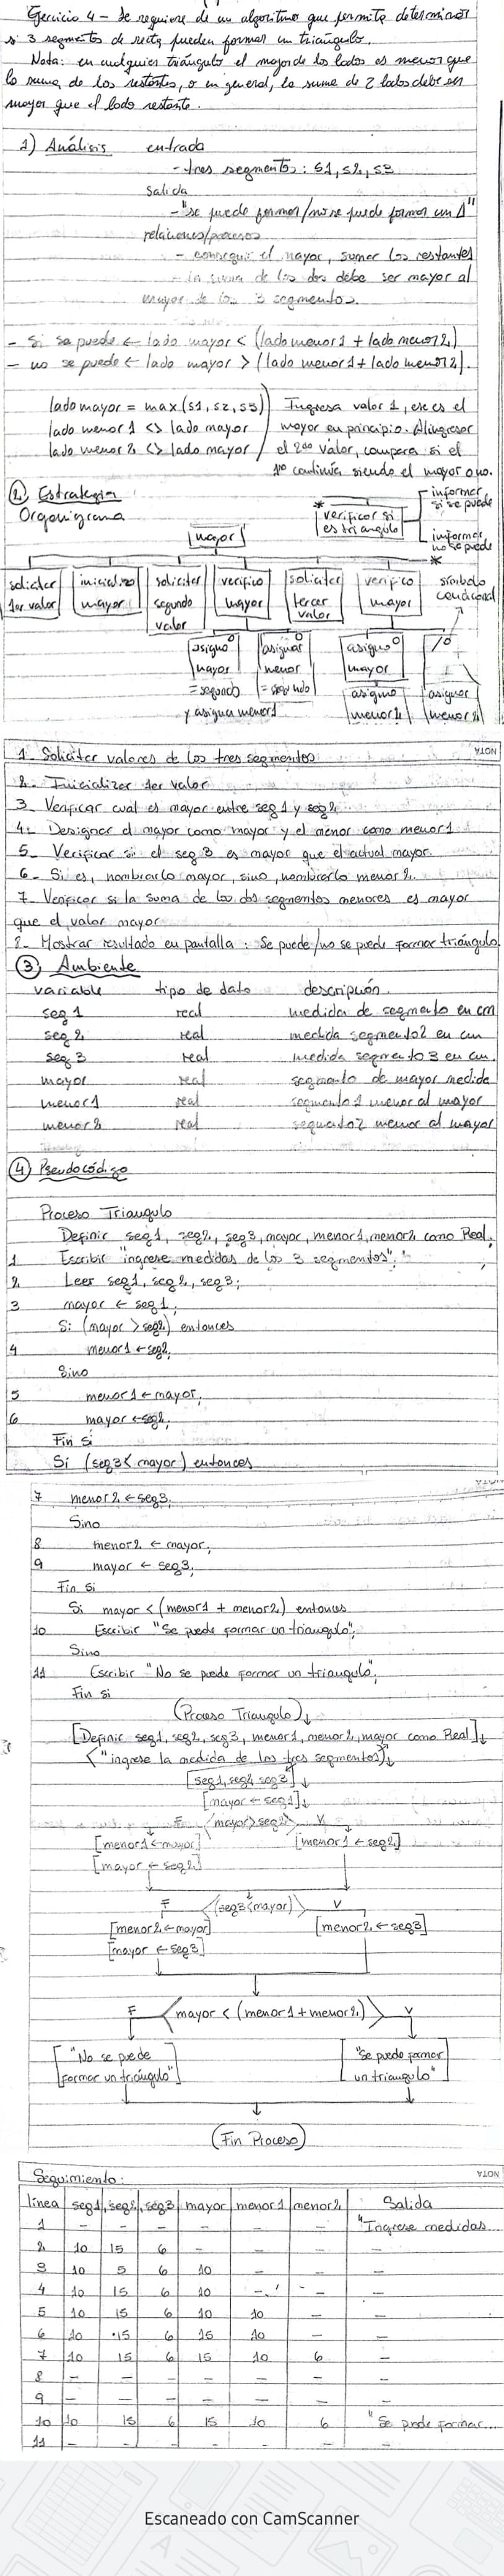 Ejercicio 4 - Se requiere de un algoritmo que permita determinar
si 3 segmentos de recta pueden formar un triángulo.
Nota: en cualquier triángulo el mayor de los lados es menor que
la suma de los restantes, o en general, la suma de 2 lados debe ser
mayor que el lado restante.
1) Análisis entrada
- tres segmentos: S1, S2, S3
Salida
- "se puede formar/no se puede formar un Δ"
relaciones/procesos
- conseguir el mayor, sumar los restantes
- la suma de los dos debe ser mayor al
mayor de los 3 segmentos.
- Si se puede ← lado mayor < (lado menor 1 + lado menor 2)
- no se puede ← lado mayor > (lado menor 1 + lado menor 2).
lado mayor = max (S1, S2, S3) Ingresa valor 1, ese es el
lado menor 1 <> lado mayor mayor en principio. Al ingresar
lado menor 2 <> lado mayor el 2do valor, compara si el
1ro continúa siendo el mayor o no.
2. Estrategia
Organigrama
mayor
* verificar si es triangulo
informar si se puede
informar no se puede
*
solicitar 1er valor
inicializo mayor
solicitar segundo valor
verifico mayor
solicitar tercer valor
verifico mayor
símbolo condicional
asigno mayor = segundo
y asigna menor 1
asignar menor = segundo
asigno mayor
asigno menor 2
asignar menor 2
1. Solicitar valores de los tres segmentos
NOTA
2. Inicializar 1er valor
3. Verificar cual es mayor entre seg 1 y seg 2
4. Designar el mayor como mayor y el menor como menor 1
5. Verificar si el seg 3 es mayor que el actual mayor.
6. Si es, nombrarlo mayor, sino, nombrarlo menor 2.
7. Verificar si la suma de los dos segmentos menores es mayor
que el valor mayor
8. Mostrar resultado en pantalla: Se puede/no se puede formar triángulo
3) Ambiente
variable tipo de dato descripción
seg 1 real medida de segmento en cm
seg 2 real medida segmento 2 en cm
seg 3 real medida segmento 3 en cm.
mayor real segmento de mayor medida
menor 1 real segmento 1 menor al mayor
menor 2 real segmento 2 menor al mayor
4) Pseudocódigo
Proceso Triangulo
Definir seg1, seg2, seg3, mayor, menor1, menor2 como Real;
1 Escribir "ingrese medidas de los 3 segmentos";
2 Leer seg1, seg2, seg3;
3 mayor ← seg1;
Si (mayor > seg2) entonces
4 menor1 ← seg2;
Sino
5 menor1 ← mayor;
6 mayor ← seg2;
Fin Si
Si (seg3 < mayor) entonces
7 menor2 ← seg3;
Sino
8 menor2 ← mayor;
9 mayor ← seg3;
Fin Si
Si mayor < (menor1 + menor2) entonces
10 Escribir "Se puede formar un triangulo";
Sino
11 Escribir "No se puede formar un triangulo";
Fin si
(Proceso Triangulo)
[Definir seg1, seg2, seg3, menor1, menor2, mayor como Real]
"ingrese la medida de los tres segmentos"
[seg1, seg2, seg3]
[mayor ← seg1]
F mayor > seg2 V
[menor1 ← mayor] [menor1 ← seg2]
[mayor ← seg2]
F (seg3 < mayor) V
[menor2 ← mayor] [menor2 ← seg3]
[mayor ← seg3]
F mayor < (menor1 + menor2) V
"No se puede formar un triángulo"
"Se puede formar un triangulo"
(Fin Proceso)
Seguimiento:
NOTA
línea seg1 seg2 seg3 mayor menor1 menor2 Salida
1 - - - - - - "Ingrese medidas...
2 10 15 6 - - - -
3 10 5 6 10 - - -
4 10 15 6 10 - - -
5 10 15 6 10 10 - -
6 10 15 6 15 10 - -
7 10 15 6 15 10 6 -
8 - - - - - - -
9 - - - - - - -
10 10 15 6 15 10 6 "Se puede formar...
11 - - - - - - -
Escaneado con CamScanner